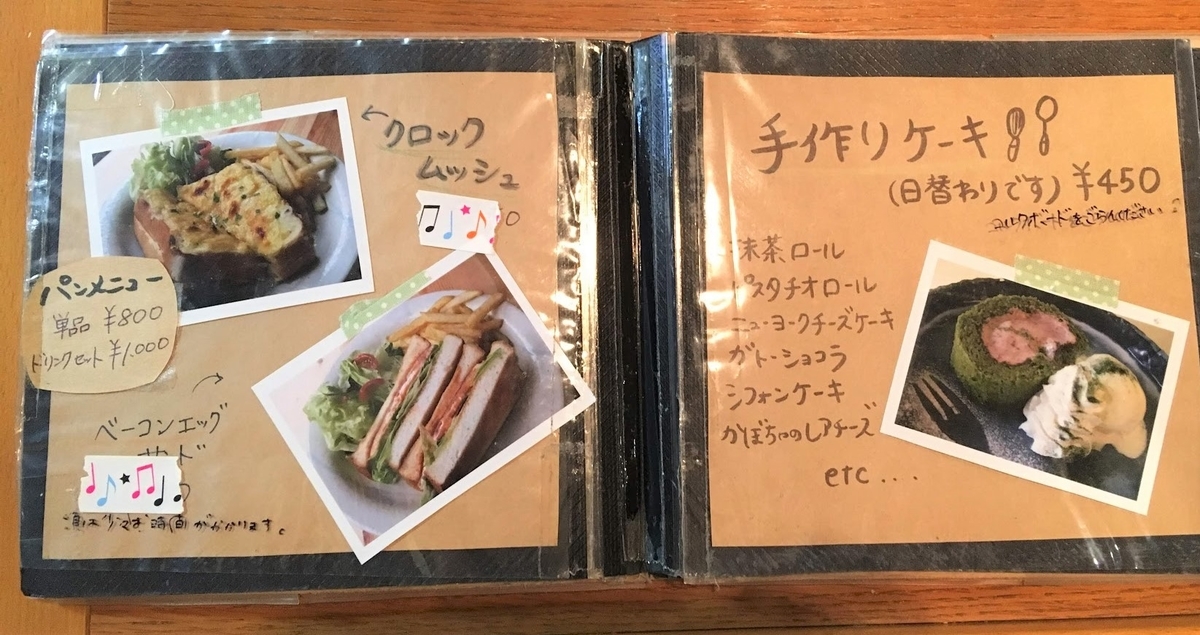 ←クロック
ムッシュ
パンメニュー
単品 ¥800
ドリンクセット ¥1,000
ベーコンエッグ
サンド
時間がかかります。
手作りケーキ
(日替わりです) ¥450
コルクボードをごらんください
抹茶ロール
ピスタチオロール
ニューヨークチーズケーキ
ガトーショコラ
シフォンケーキ
かぼちゃのレアチーズ
etc...